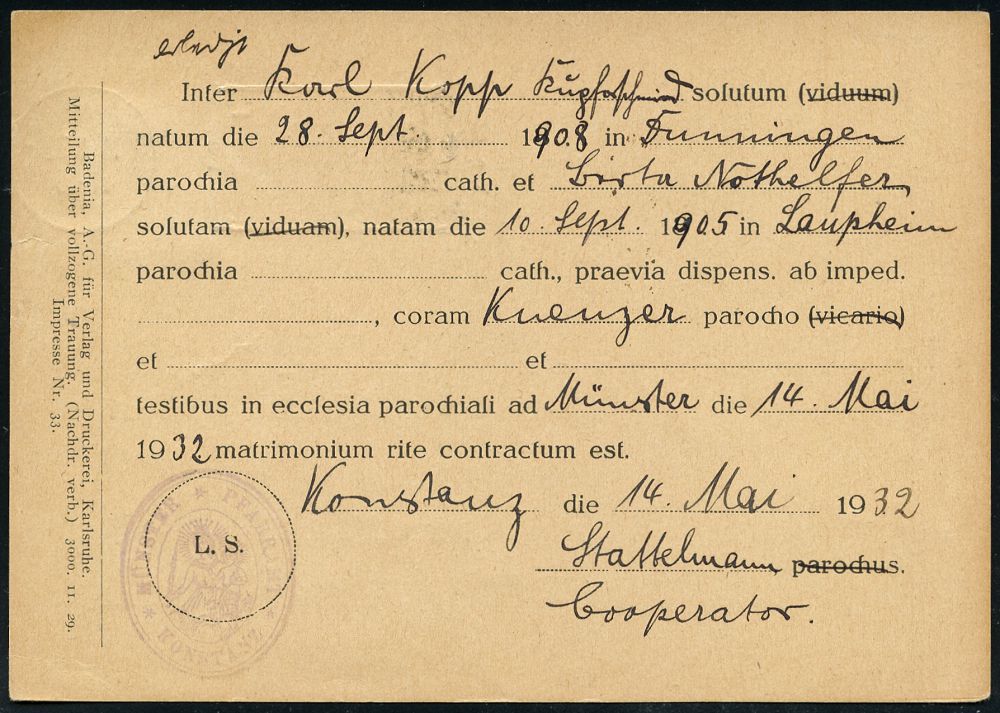 erledigt
Inter Karl Kopp Kupferschmied solutum (viduum)
natum die 28. Sept. 1908 in Funningen
parochia cath. et Berta Nothelfer
solutam (viduam), natam die 10. Sept. 1905 in Laupheim
parochia cath., praevia dispens. ab imped.
, coram Kuenzer parocho (vicario)
et et
testibus in ecclesia parochiali ad Münster die 14. Mai
1932 matrimonium rite contractum est.
Konstanz die 14. Mai 1932
L. S.
Stattelmann parochus.
Cooperator.
MÜNSTER * PFARRAMT * KONSTANZ *
Badenia, A.-G. für Verlag und Druckerei, Karlsruhe.
Mitteilung über vollzogene Trauung. (Nachdr. verb.) 3000. 11. 29.
Impresse Nr. 33.